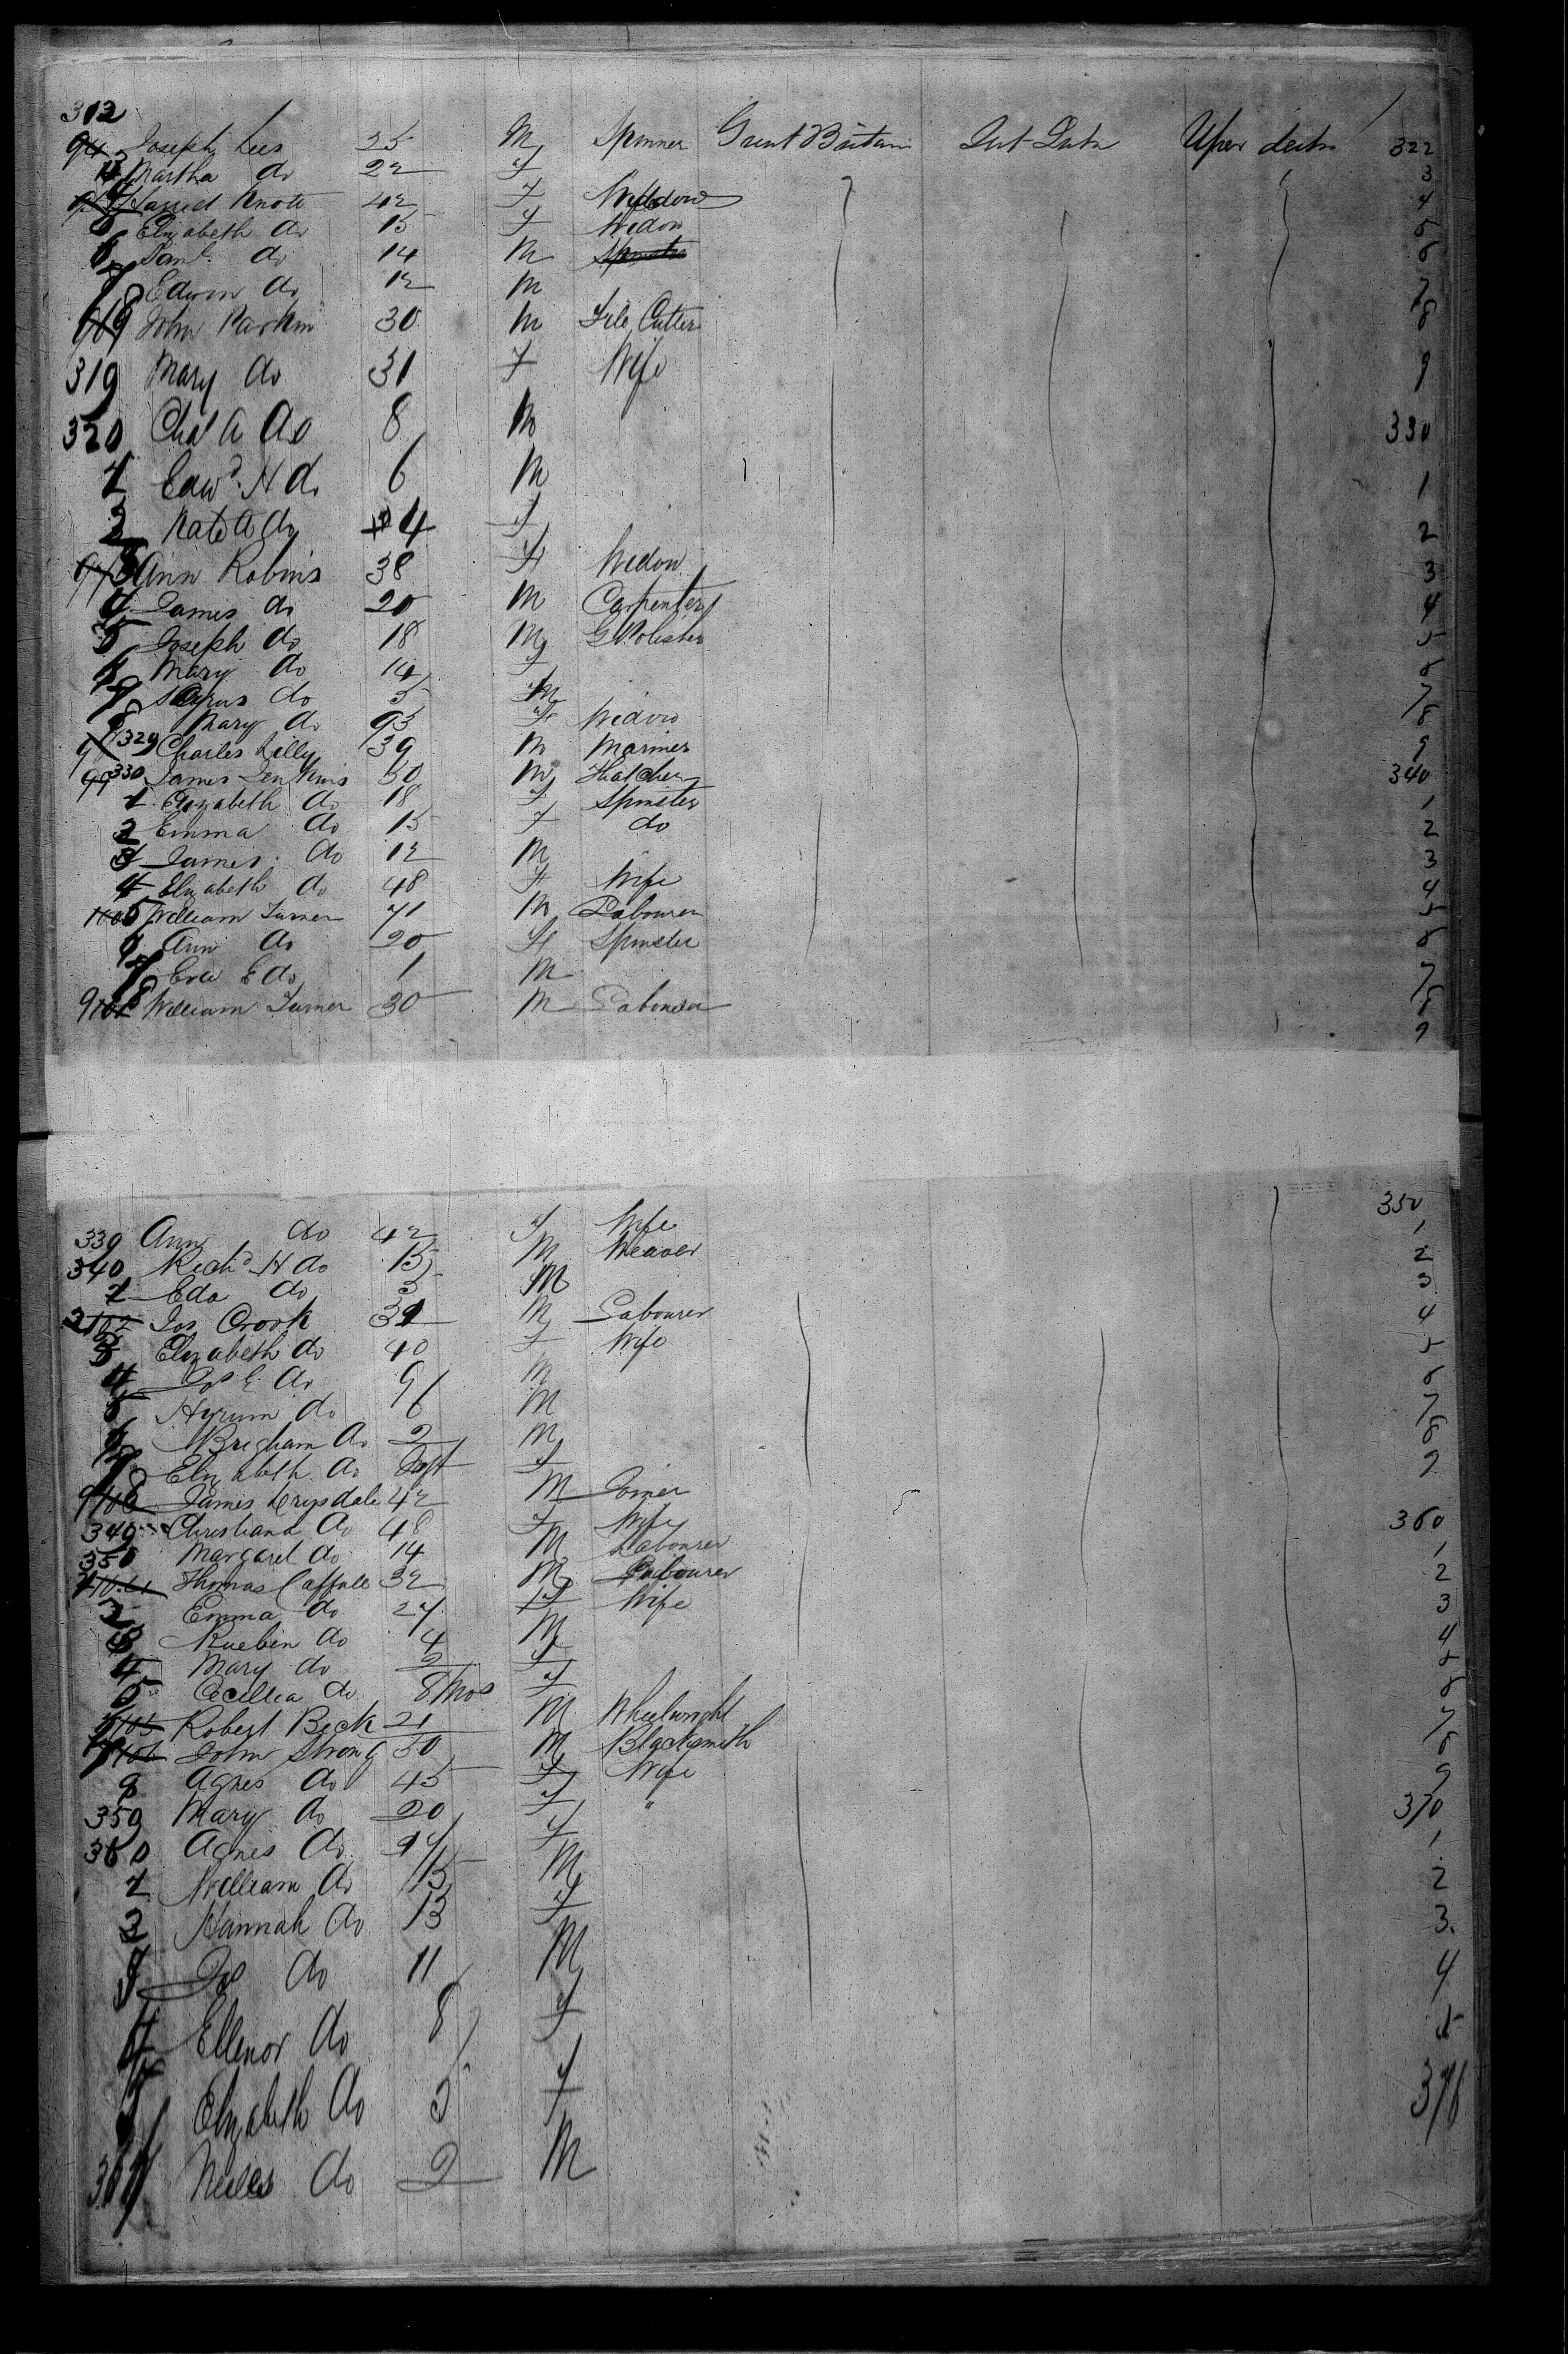 312
Joseph Lees 25 M Spinner Great Britain Upper deck 322
Martha do 22 F 3
Harriet Knott 42 F Widow 4
5 Elizabeth do 15 F Widow 5
6 Saml. do 14 M 6
7 Edwin do 12 M 7
8 John Parkin 30 M File Cutter 8
319 Mary do 31 F Wife 9
320 Chas A do 8 M 330
1 Edwd. H do 6 M 1
2 Kate A do 4 F 2
3 Ann Robins 38 F Widow 3
4 James do 20 M Carpenter 4
5 Joseph do 18 M G Polisher 5
6 Mary do 14 F 6
7 do 5 M 7
8 Mary do F Widow 8
329 Charles Lilly 39 M Mariner 9
330 James Jenkins 50 M Thatcher 340
1 Elizabeth do 18 F Spinster 1
2 Emma do 15 F do 2
3 James do 12 M 3
4 Elizabeth do 48 F Wife 4
5 William Turner 71 M Labourer 5
6 Ann do 20 F Spinster 6
7 do 1 M 7
8 William Turner 30 M Labourer 8
9
350
339 Ann do 42 F Wife 1
340 Richd H do 15 M Weaver 2
1 do 5 M 3
2 Jos Crook M Labourer 4
3 Elizabeth do 40 F Wife 5
4 Jos E do 9 M 6
5 Hyrum do 6 M 7
6 Brigham do 2 M 8
7 Elizabeth do Inft F 9
8 James Crysdale 42 M Joiner
349 Christiana do 48 F Wife 360
350 Margaret do 14 M Labourer 1
1 Thomas Caffall 32 M Labourer 2
2 Emma do 27 F Wife 3
3 Rueben do 4 M 4
4 Mary do 2 F 5
5 Cecillia do 8 Mos F 6
6 Robert Beck 21 M Wheelwright 7
7 John Strong 50 M Blacksmith 8
8 Agnes do 45 F Wife 9
359 Mary do 20 F " 370
360 Agnes do F 1
1 William do 15 M 2
2 Hannah do 13 F 3
3 Jos do 11 M 4
4 Ellenor do 8 F 5
5 Elizabeth do 5 F 376
do 2 M